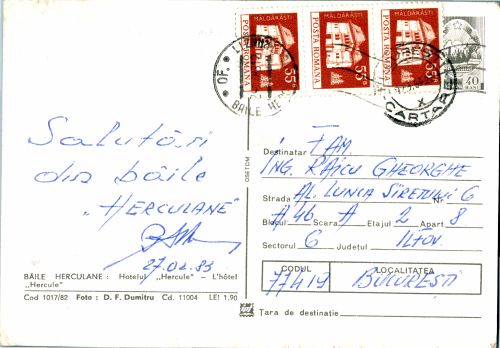 MĂLDĂRĂȘTI MĂLDĂRĂȘTI
POSTA ROMANA 55B POSTA ROMANA 55B POSTA ROMANA 55B
40
BANI
OF.
BĂILE HE
CARTAR
Salutări
din băile
"HERCULANE"
27.02.83
BĂILE HERCULANE: Hotelul „Hercule" — L'hôtel
„Hercule"
Cod 1017/82 Foto: D. F. Dumitru Cd. 11004 LEI 1,90
OSETCM
Destinatar FAM.
ING. RAICU GHEORGHE
Strada AL. LUNCA SIRETULUI Nr. 6
Blocul A46 Scara A Etajul 2 Apart 8
Sectorul 6 Județul ILFOV
CODUL LOCALITATEA
77419 BUCUREȘTI
Țara de destinație